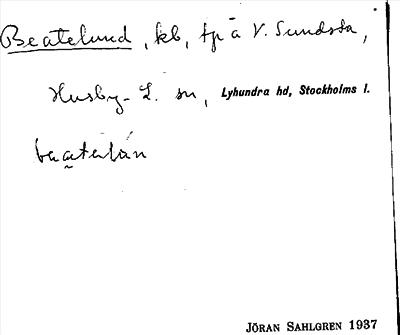 Beatelund, kb, tp å V. Sundsta,
Husby-L. sn, Lyhundra hd, Stockholms l.
JÖRAN SAHLGREN 1937